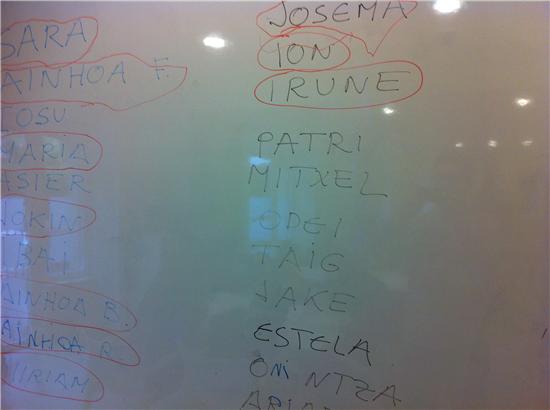 SARA
AINHOA F.
JOSU
MARIA
ASIER
JOKIN
IBAI
AINHOA B.
AINHOA
MIRIAM
JOSEMA
ION
IRUNE
PATRI
MITXEL
ODEI
TAIG
JAKE
ESTELA
ONINTZA